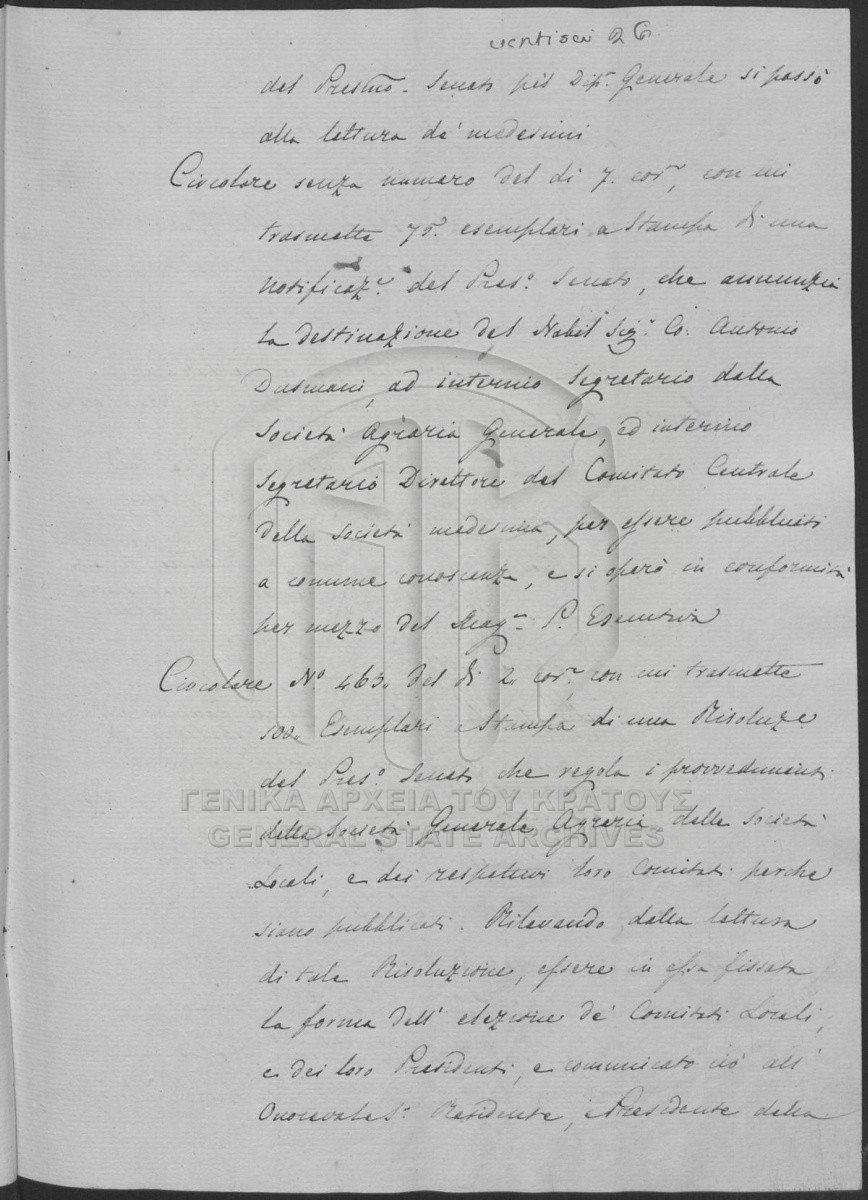 ventisei 26
del Prestmo. Senato pel Dip.e Generale si passò
alla lettura de' medesimi
Circolare senza numero del di 7. cor.e, con cui
trasmette 70. esemplari a Stampa di una
notificaz.e del Pres.o Senato, che annunzia
la destinazione del Nobil Sig.r Co: Antonio
Dusmani, ad interino Segretario della
Società Agraria Generale, ed interino
Segretario Direttore del Comitato Centrale
della Società medesima, per essere pubblicati
a comune conoscenza, e si operò in conformità
per mezzo del Mag.e P. Esecutiva
Circolare N.o 463. del di 2. cor.e, con cui trasmette
500. Esemplari a Stampa di una Risoluz.e
del Pres.o Senato che regola i provvedimenti
della Società Generale Agraria, delle Società
Locali, e dei respettivi loro Comitati perche
siano pubblicati. Rilevando dalla lettura
di tale Risoluzione, essere in essa fissata
la forma dell' elezione de' Comitati Locali,
e dei loro Presidenti, e comunicato ciò all'
Onorevole S.r Residente, Presidente della
ΓΕΝΙΚΑ ΑΡΧΕΙΑ ΤΟΥ ΚΡΑΤΟΥΣ
GENERAL STATE ARCHIVES